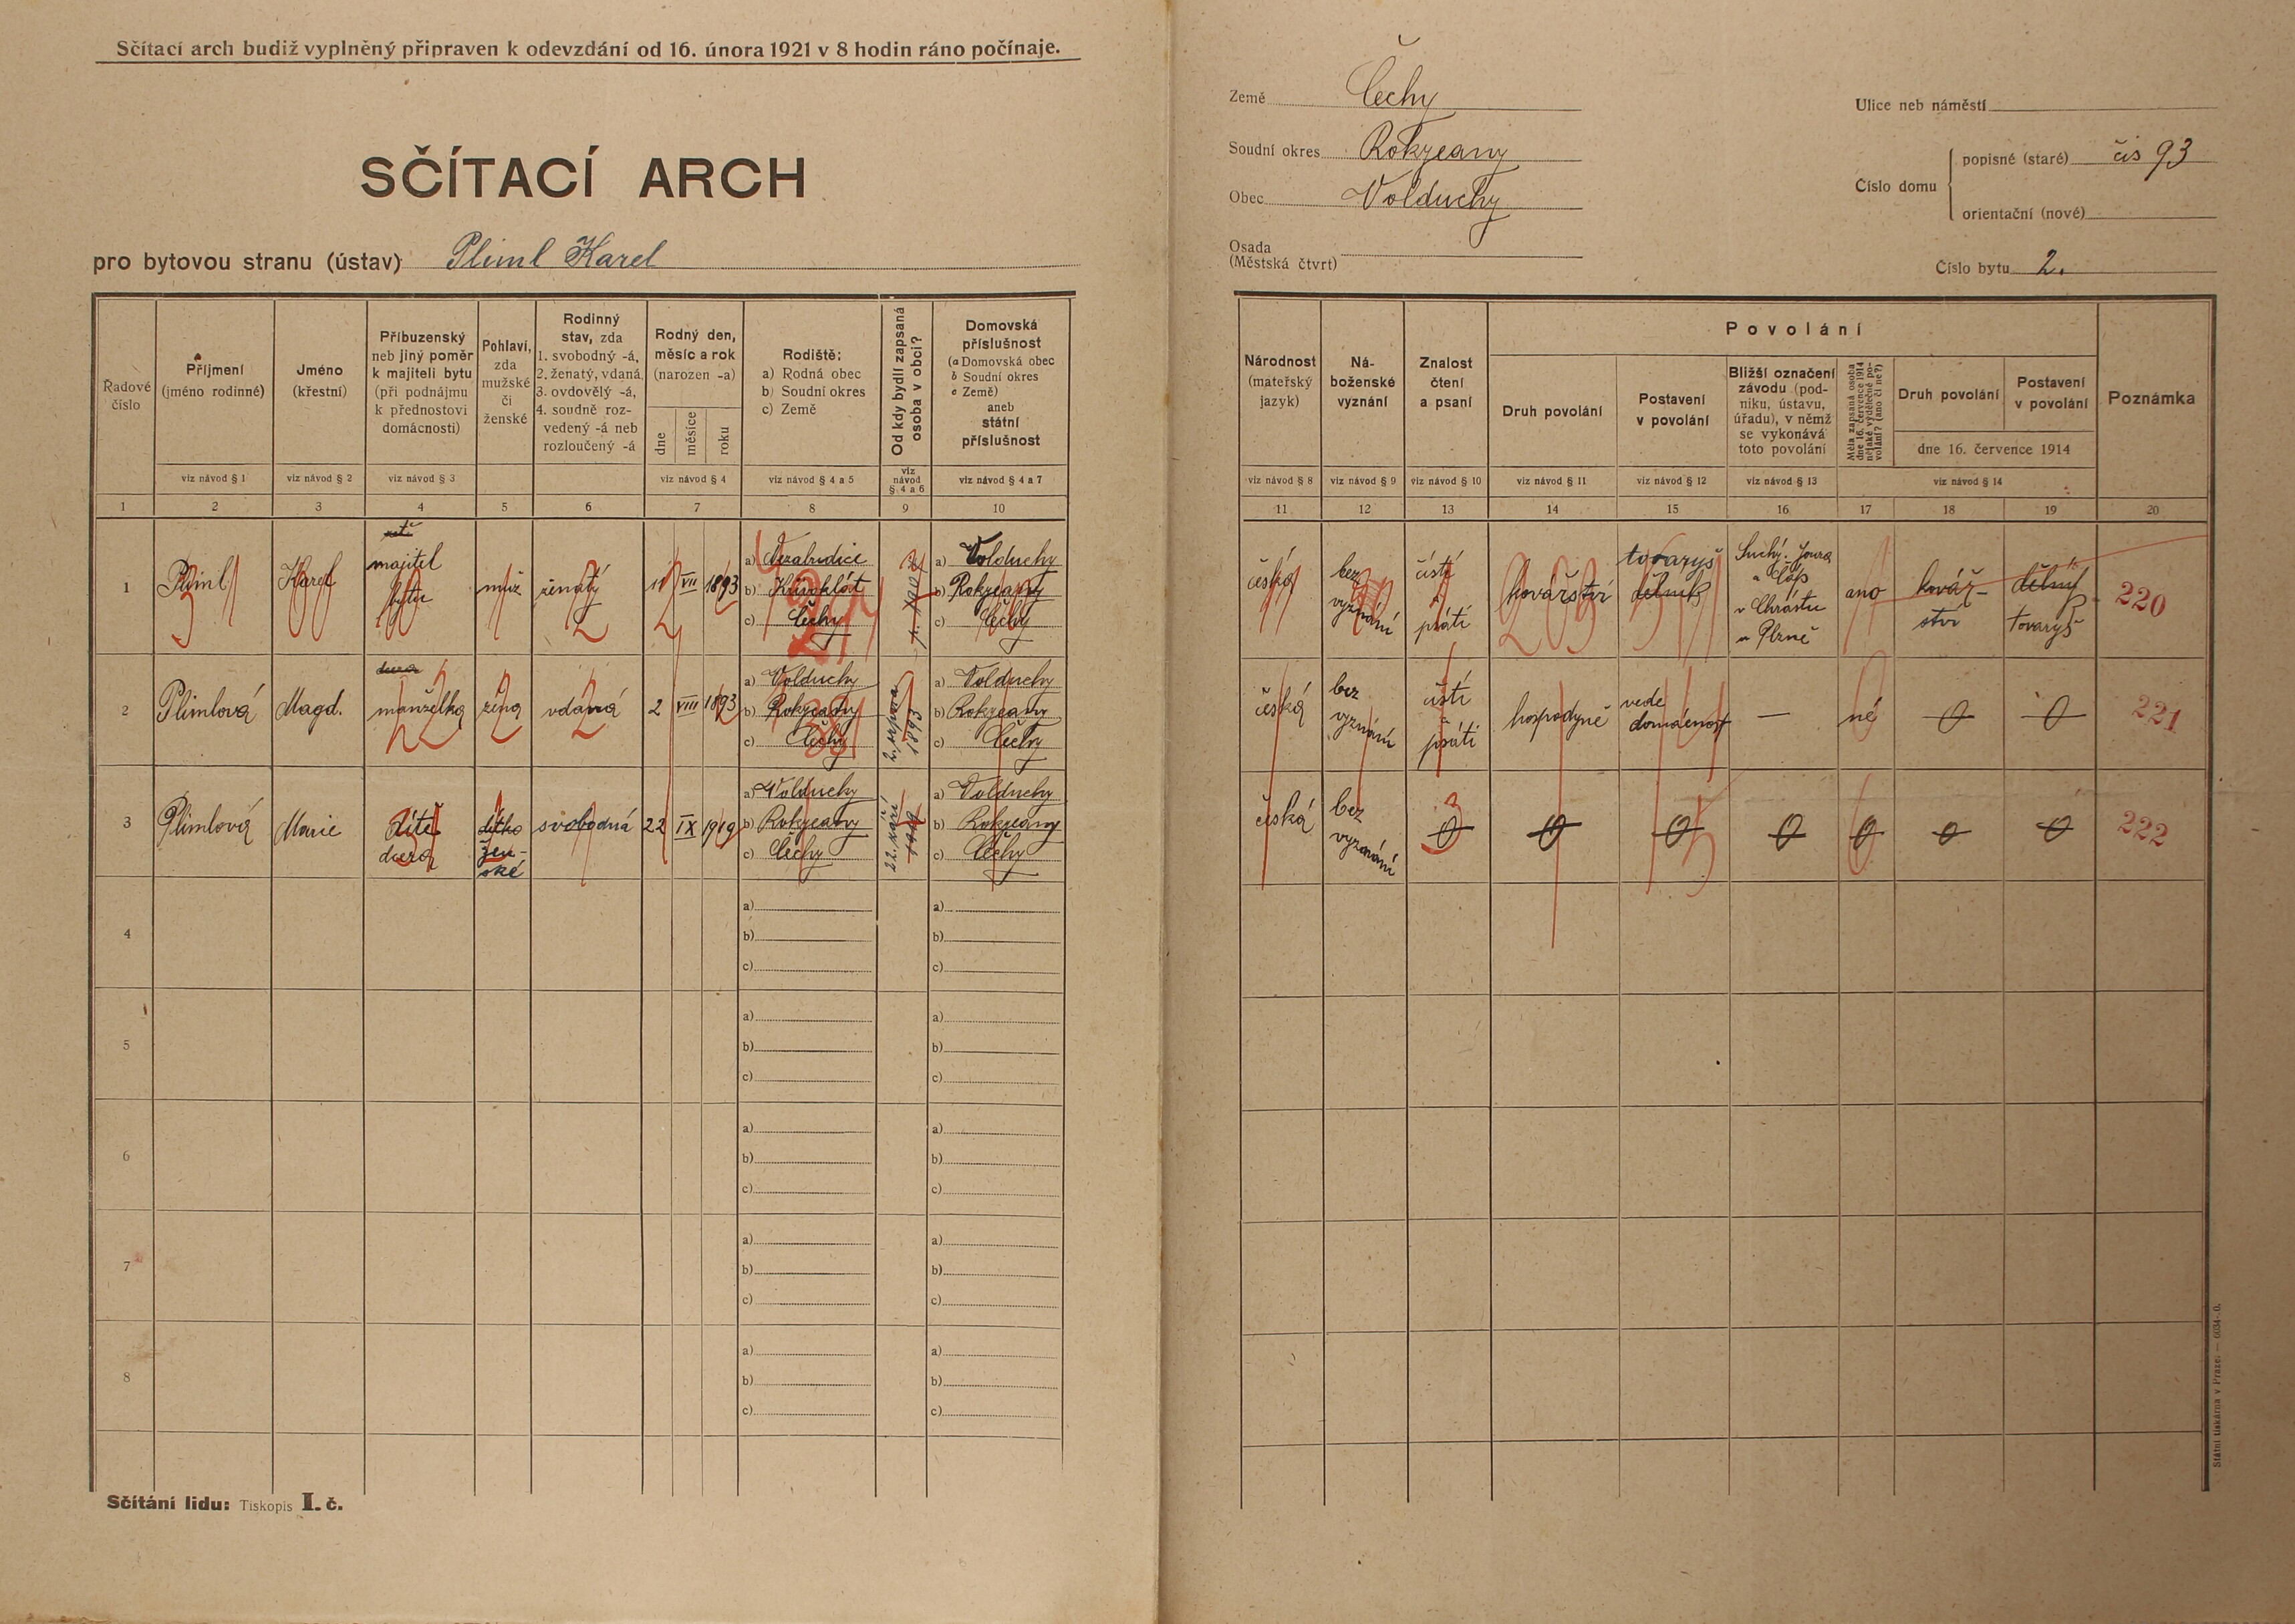 Sčítací arch budiž vyplněný připraven k odevzdání od 16. února 1921 v 8 hodin ráno počínaje.
SČÍTACÍ ARCH
pro bytovou stranu (ústav) Pliml Karel
Země Čechy
Soudní okres Rokycany
Obec Volduchy
Osada
(Městská čtvrt)
Ulice neb náměstí
Číslo domu
popisné (staré) čís 93
orientační (nové)
Číslo bytu 2.
Řadové
číslo
Příjmení
(jméno rodinné)
Jméno
(křestní)
Příbuzenský
neb jiný poměr
k majiteli bytu
(při podnájmu
k přednostovi
domácnosti)
Pohlaví,
zda
mužské
či
ženské
Rodinný
stav, zda
1. svobodný -á,
2. ženatý, vdaná,
3. ovdovělý -á,
4. soudně roz-
vedený -á neb
rozloučený -á
Rodný den,
měsíc a rok
(narozen -a)
dne
měsíce
roku
Rodiště:
a) Rodná obec
b) Soudní okres
c) Země
Od kdy bydlí zapsaná
osoba v obci?
Domovská
příslušnost
(a Domovská obec
b Soudní okres
c Země)
aneb
státní
příslušnost
viz návod § 1
viz návod § 2
viz návod § 3
viz návod § 4
viz návod § 4 a 5
viz
návod
§ 4 a 6
viz návod § 4 a 7
1 2 3 4 5 6 7 8 9 10
Národnost
(mateřský
jazyk)
Ná-
boženské
vyznání
Znalost
čtení
a psaní
Povolání
Druh povolání
Postavení
v povolání
Bližší označení
závodu (pod-
niku, ústavu,
úřadu), v němž
se vykonává
toto povolání
Měla zapsaná osoba
dne 16. července 1914
nějaké výdělečné po-
volání? (ano či ne?)
Druh povolání
Postavení
v povolání
dne 16. července 1914
Poznámka
viz návod § 8
viz návod § 9
viz návod § 10
viz návod § 11
viz návod § 12
viz návod § 13
viz návod § 14
11 12 13 14 15 16 17 18 19 20
1
Pliml
Karel
majitel
bytu
muž
ženatý
11 VII 1893
a) Nezabudice
b) Křivoklát
c) Čechy
a) Volduchy
b) Rokycany
c) Čechy
česká
bez
vyznání
čísti
a
psáti
kovářství
tovaryš
dělník
v Chrástu
u Plzně
ano
kovář-
ství
dělník
tovaryš
220
2
Plimlová
Magd.
dcera
manželka
žena
vdaná
2 VIII 1893
a) Volduchy
b) Rokycany
c) Čechy
2. srpna
1893
a) Volduchy
b) Rokycany
c) Čechy
česká
bez
vyznání
čísti
psáti
hospodyně
vede
domácnost
—
né
0
0
221
3
Plimlová
Marie
dítě
dcera
děcko
žen-
ské
svobodná
22 IX 1919
a) Volduchy
b) Rokycany
c) Čechy
22. září
1919
a) Volduchy
b) Rokycany
c) Čechy
česká
bez
vyznání
0
0
0
0
0
0
0
222
4
a)
b)
c)
a)
b)
c)
5
a)
b)
c)
a)
b)
c)
6
a)
b)
c)
a)
b)
c)
7
a)
b)
c)
a)
b)
c)
8
a)
b)
c)
a)
b)
c)
Sčítání lidu: Tiskopis I. č.
Státní tiskárna v Praze. — 6034-0.